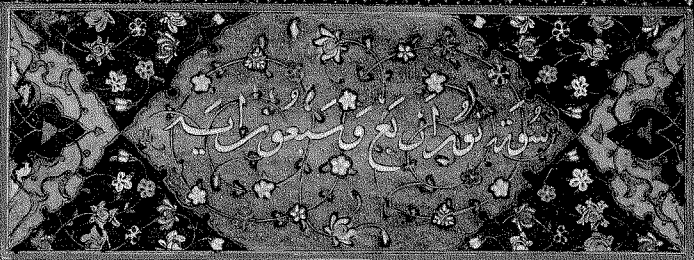 سُورَة نُور اَربَع وَسَبعُونَ ايَة